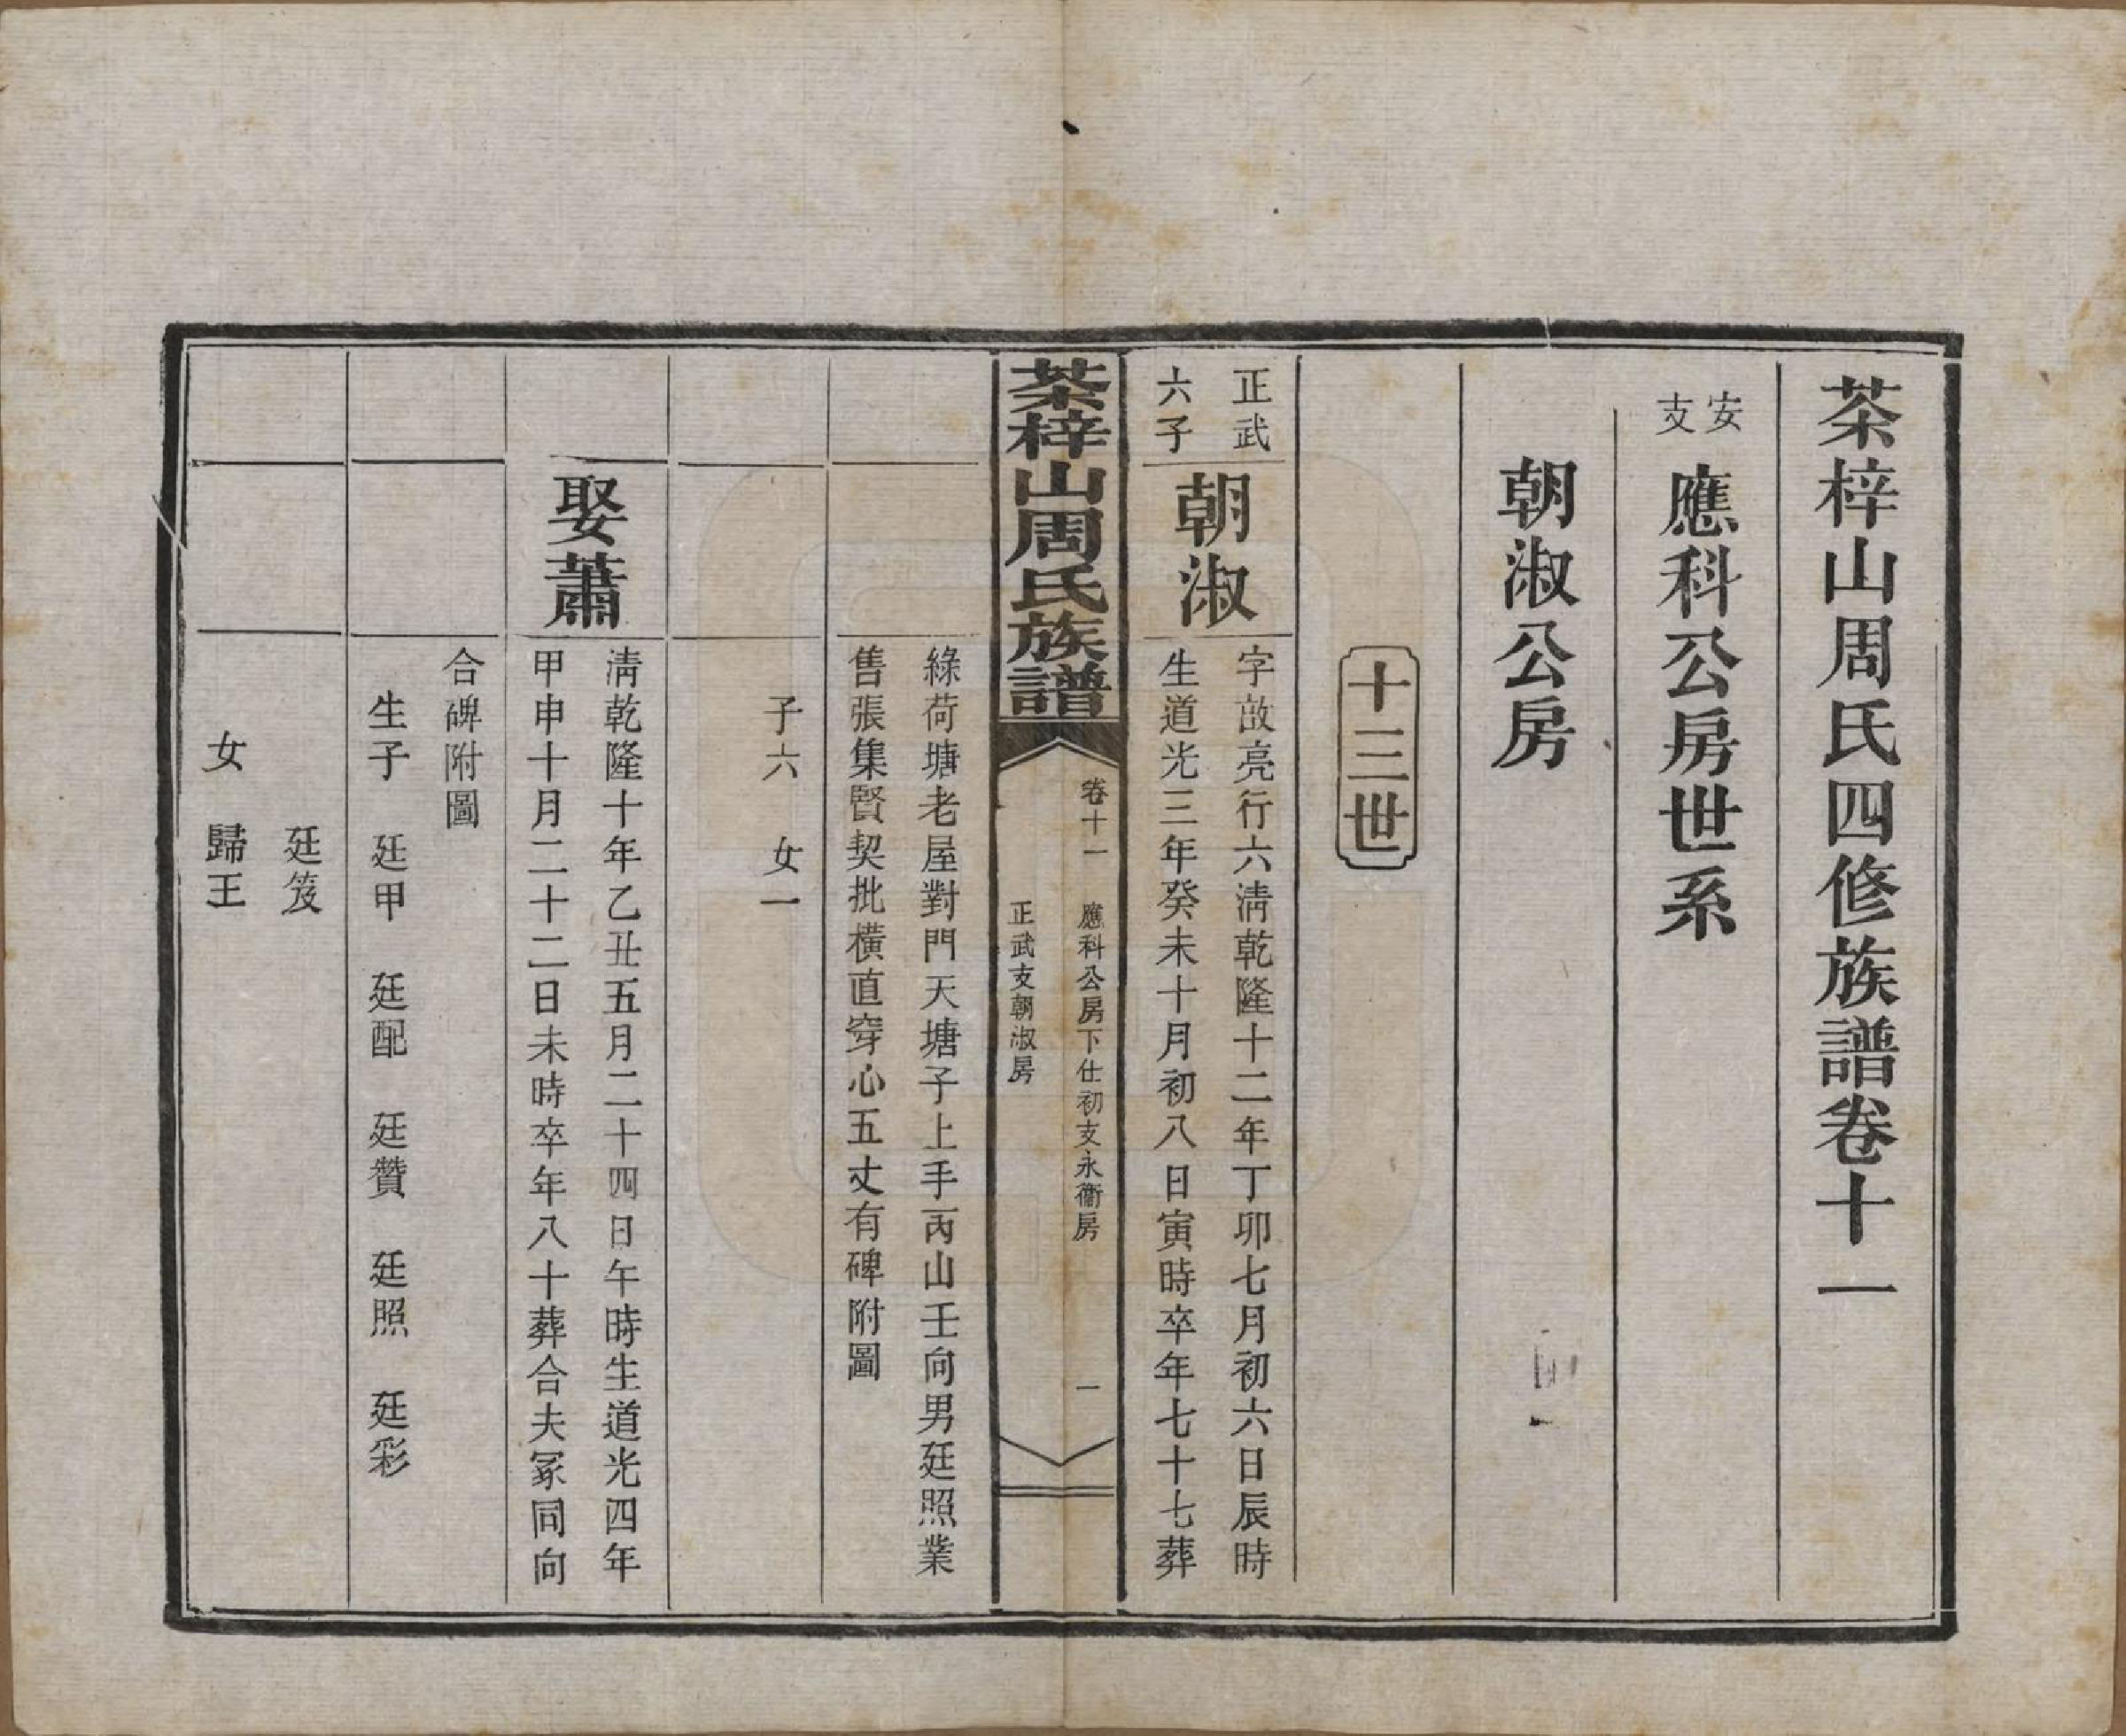 茶梓山周氏四修族譜卷十一
安支
應科公房世系
朝淑公房
十三世
正武
六子
朝淑
字啟亮行六清乾隆十二年丁卯七月初六日辰時
生道光三年癸未十月初八日寅時卒年七十七葬
茶梓山周氏族譜
卷十一
應科公房下仕初支永衞房
正武支朝淑房
一
綠荷塘老屋對門天塘子上手丙山壬向男廷照業
售張集賢契批橫直穿心五丈有碑附圖
子六 女一
娶蕭
清乾隆十年乙丑五月二十四日午時生道光四年
甲申十月二十二日未時卒年八十葬合夫冢同向
合碑附圖
生子 廷甲 廷配 廷贊 廷照 廷彩
廷笈
女 歸王